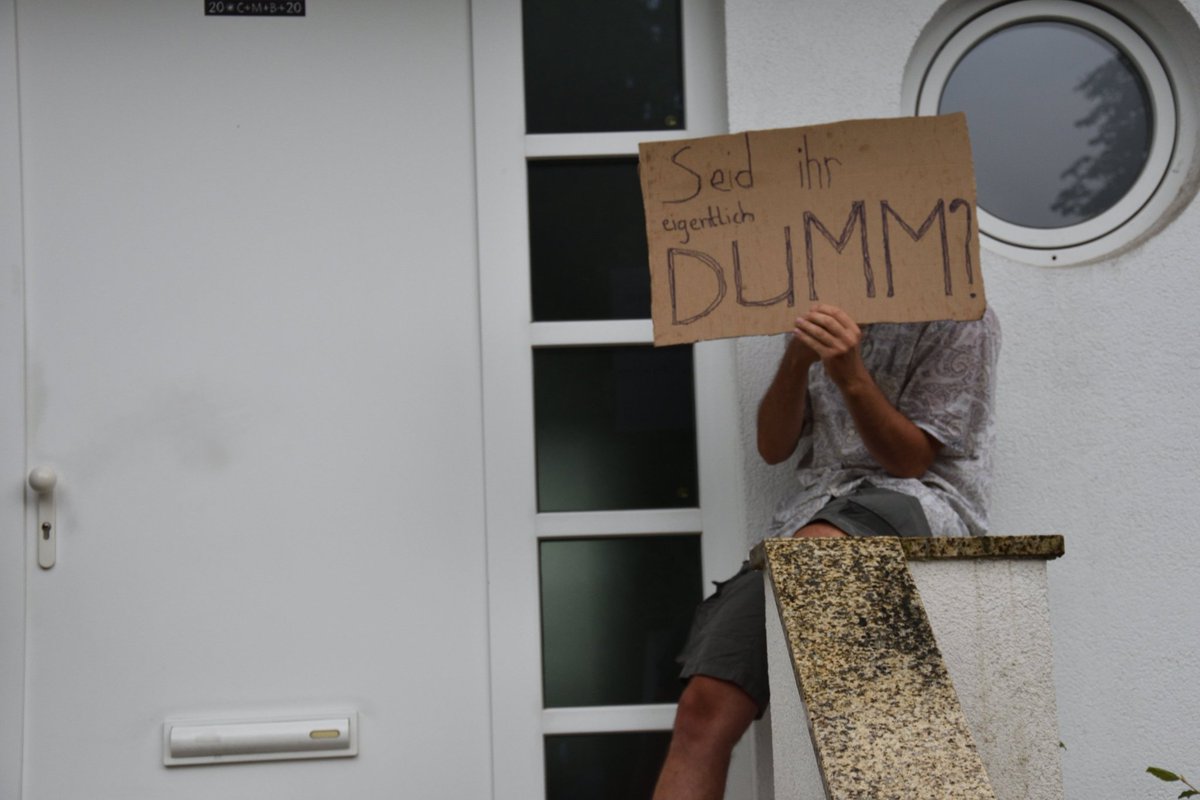 20*C+M+B+20
Seid ihr
eigentlich
DUMM?